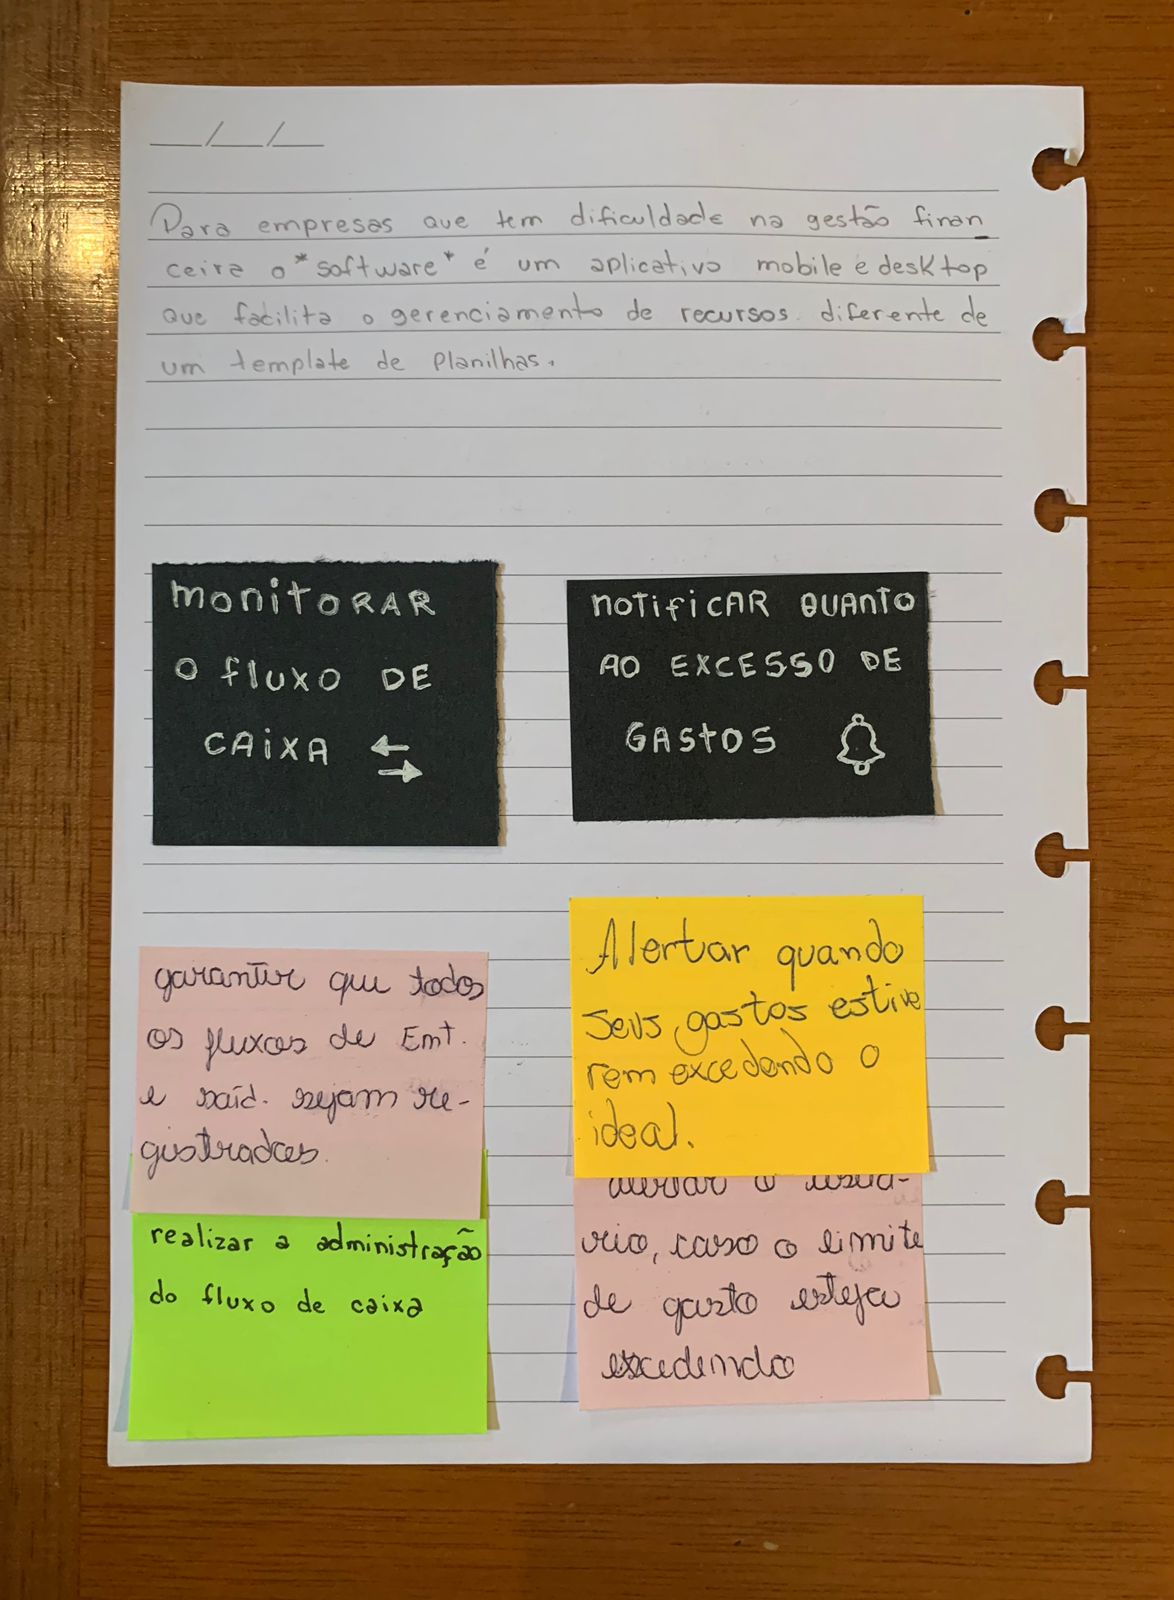 __/__/__
Para empresas que tem dificuldade na gestão finan
ceira o *software* é um aplicativo mobile e desktop
que facilita o gerenciamento de recursos. diferente de
um template de planilhas.
monitorAR
o fluxo DE
CAixA
notificAR QUANTO
AO EXCESSO DE
GAStOS
garantir que todos
os fluxos de Ent.
e said. sejam re-
gistradas.
realizar a administração
do fluxo de caixa
Alertar quando
seus gastos estive
rem excedendo o
ideal.
alertar o usuá-
rio, caso o limite
de gasto esteja
excedendo